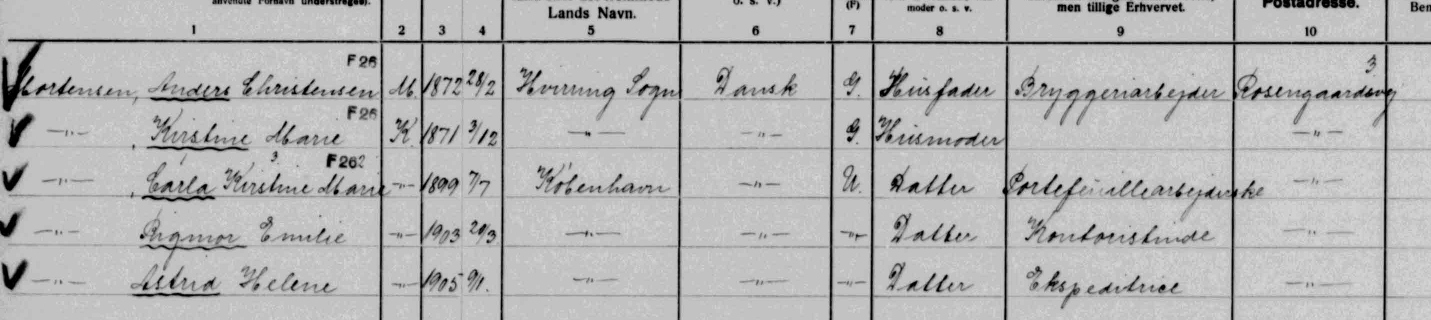 anvendte Fornavn understreges).
Lands Navn.
o. s. v.)
(F)
moder o. s. v.
men tillige Erhvervet.
Postadresse.
1 2 3 4 5 6 7 8 9 10
F26 3
Mortensen, Anders Christensen M. 1872 28/2 Hvirring Sogn Dansk G. Husfader Bryggeriarbejder Rosengaardsvej
F26
—"— , Kirstine Marie K. 1871 3/12 —"— —"— G. Husmoder —"—
F262
—"— , Carla Kirstine Marie —"— 1899 7/7 København —"— U. Datter Portefeuillearbejderske —"—
—"— Rigmor Emilie —"— 1903 20/3 —"— —"— —"— Datter Kontoristinde —"—
—"— Astrid Helene —"— 1905 9/1. —"— —"— —"— Datter Ekspeditrice —"—